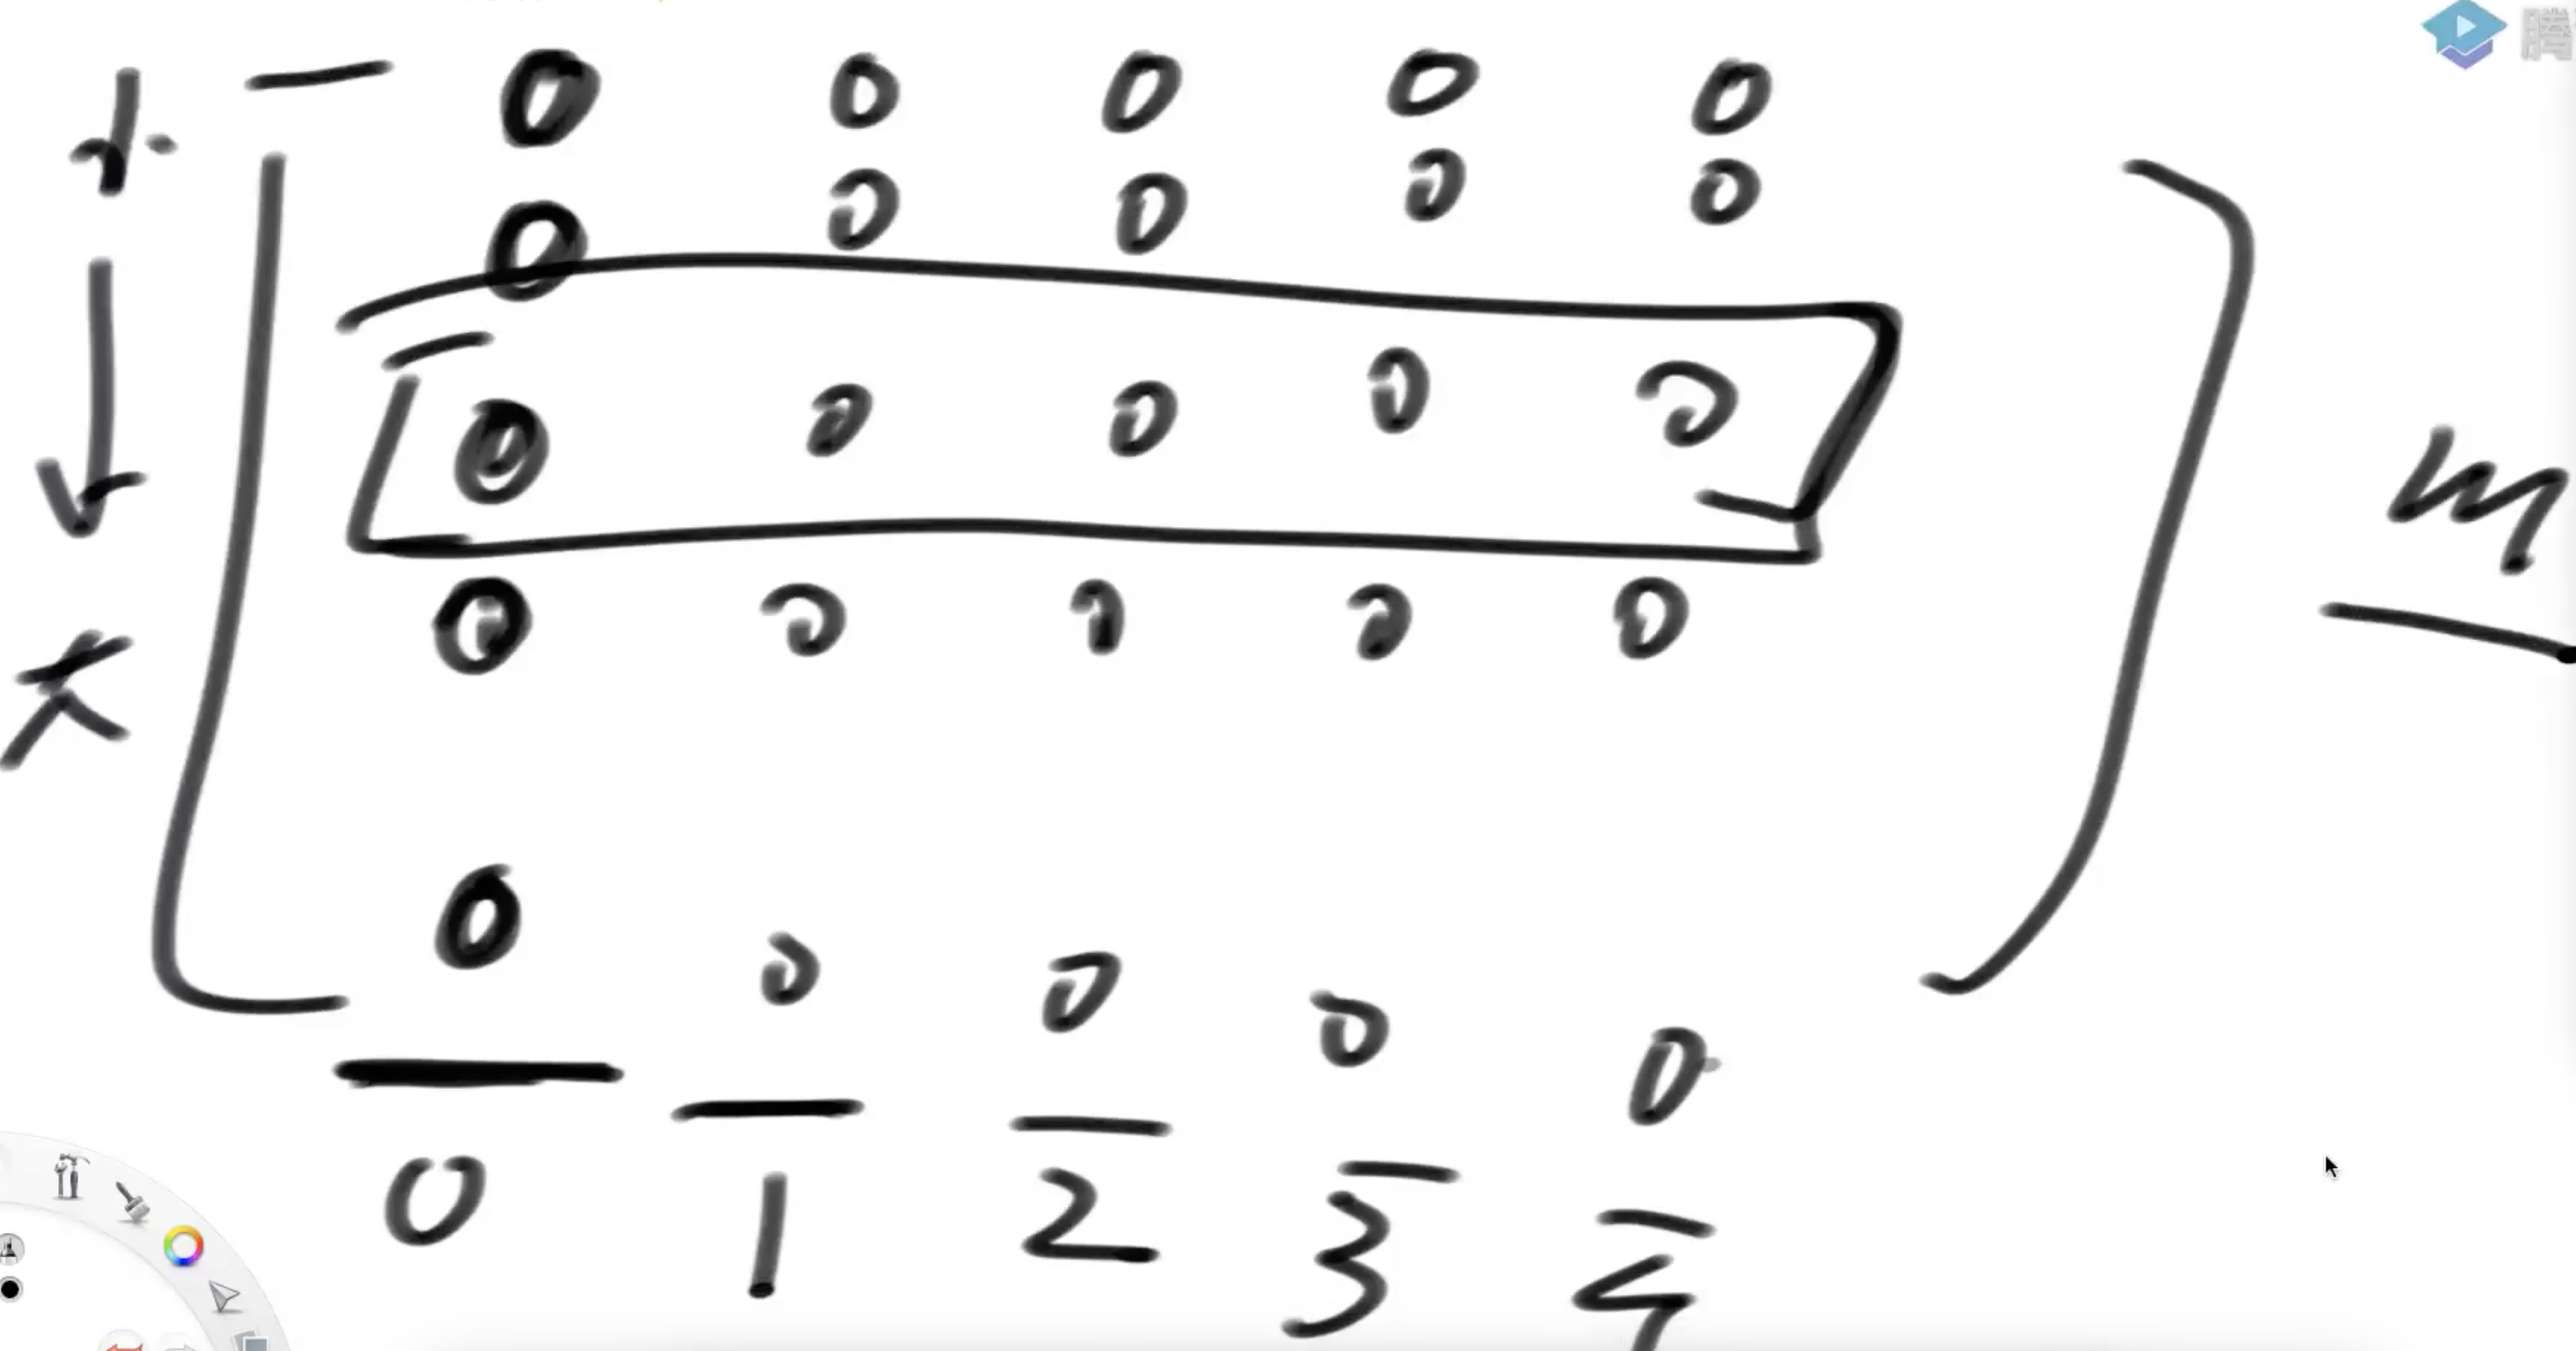 小 0 0 0 0 0
0 0 0 0 0
0 0 0 0 0
m
大 0 0 0 0 0
0 0 0 0 0
0 1 2 3 4
腾